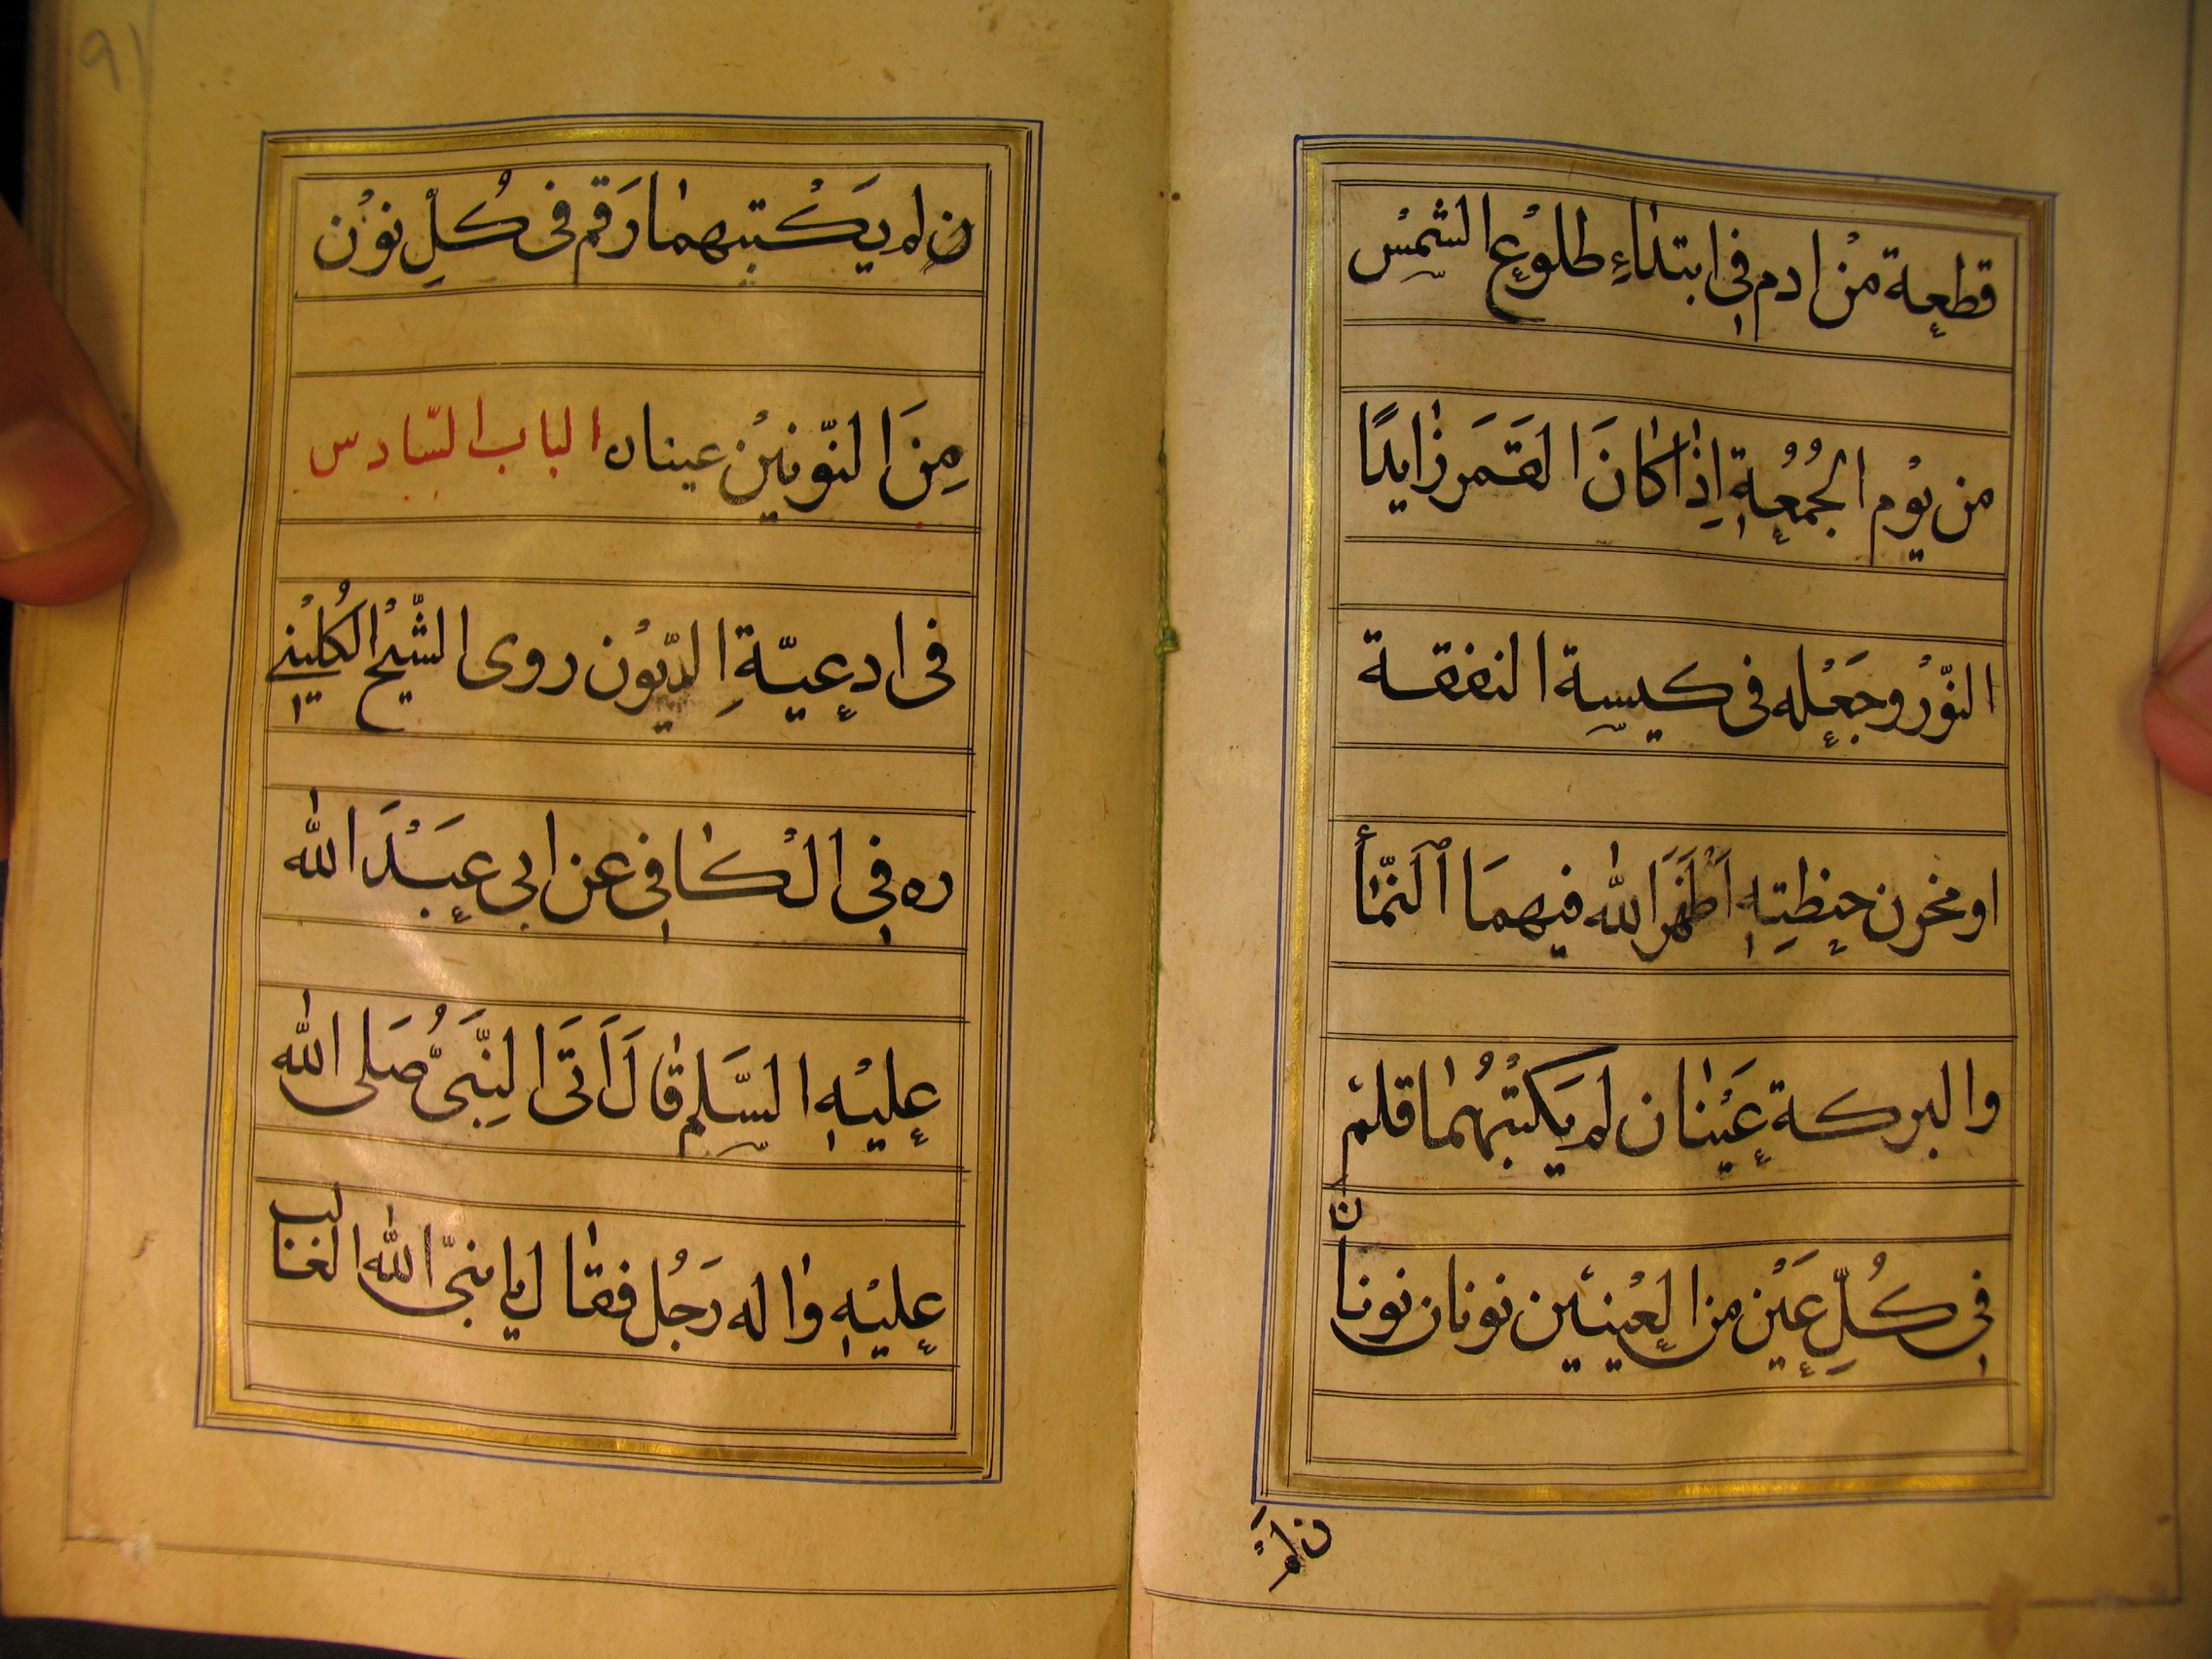 قطعة من ادم في ابتداء طلوع الشمس
من يوم الجمعة اذا كان القمر زايدا
النور وجعله فى كيسة النفقة
او مخزن حنطته اظهر الله فيهما النماء
والبركة عينان لم يكتبهما قلم
فى كل عين من العينين نونان نونان
ن لم
٩١
ن لم يكتبهما رقم فى كل نون
من النونين عينان الباب السادس
فى ادعية الديون روى الشيخ الكلينى
ره فى الكافى عن ابى عبد الله
عليه السلم قال اتى النبى صلى الله
عليه واله رجل فقال يا نبى الله الغالب